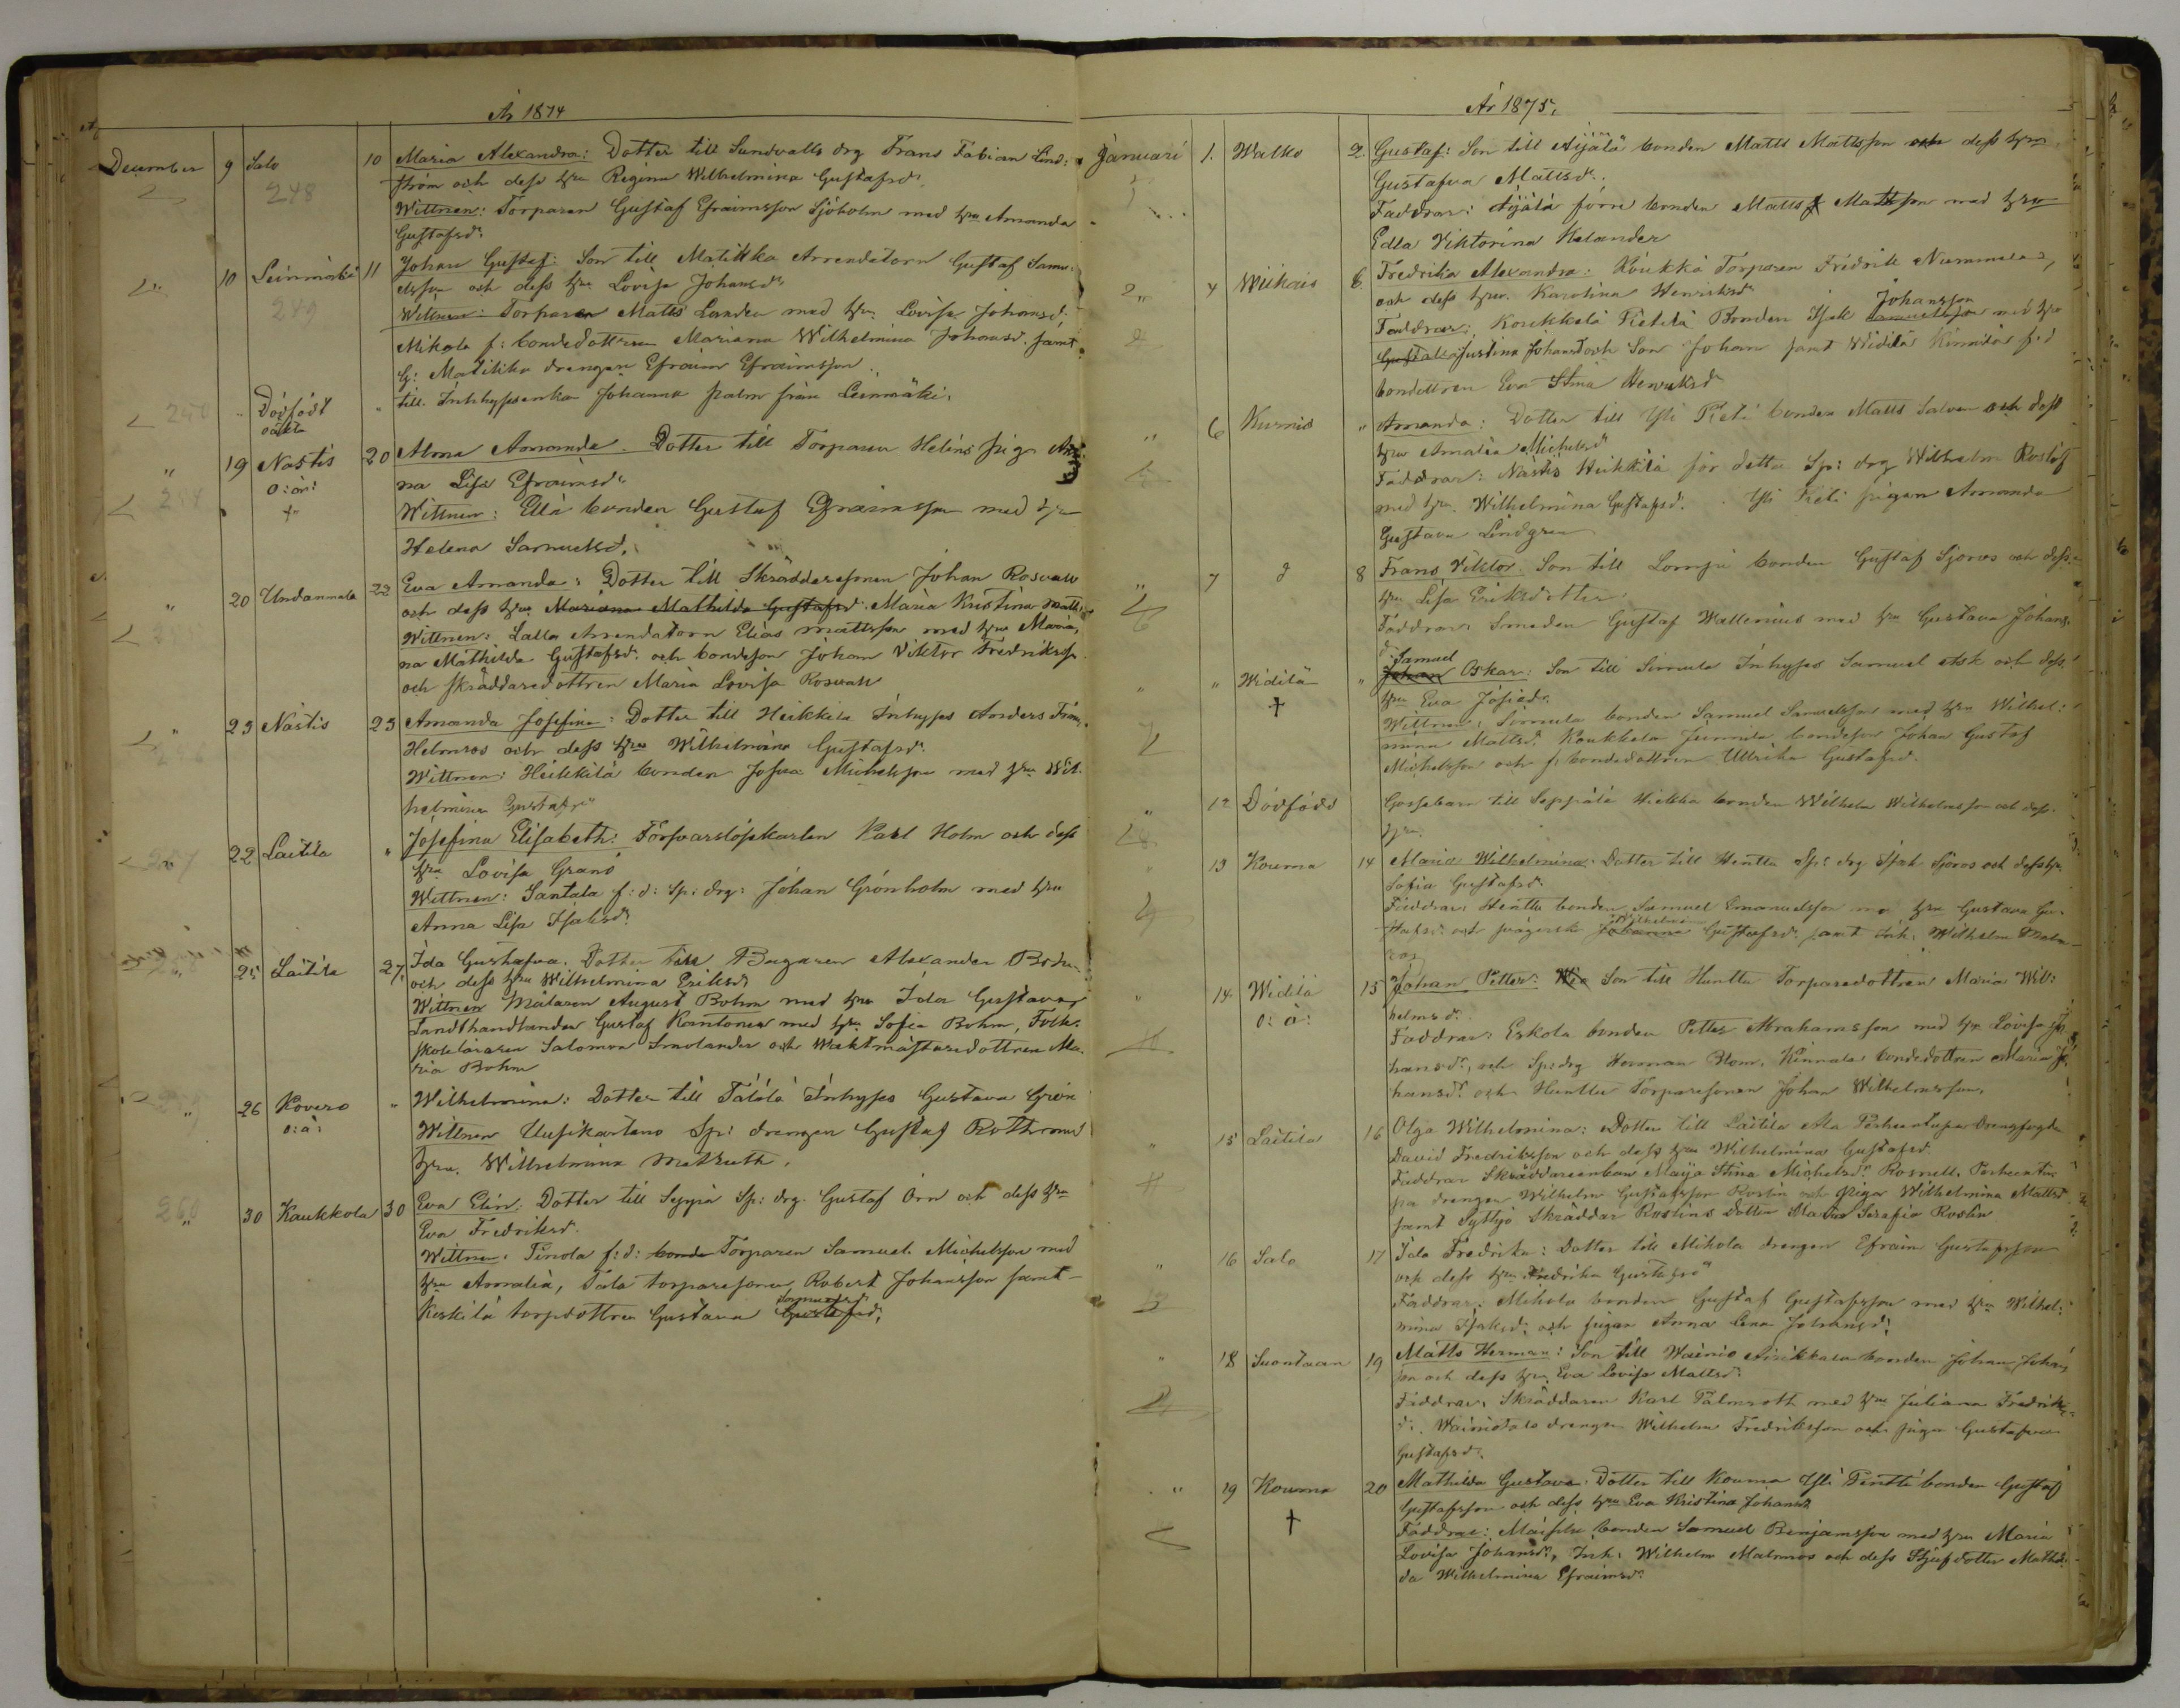 År 1874
December 9 Salo 10 Maria Alexandra: Dotter till Sundvalls drg Frans Fabian Lind:
248 ström och dess hru Regina Wilhelmina Gustafsdr
Wittnen: Torparen Gustaf Efraimsson Sjöholm med hru Amanda
Gustafsdr
10 Leinmäki 11 Johan Gustaf: Son till Matikka Arrendatorn Gustaf Samu:
249 elsson och dess hru Lovisa Johansdr
Wittnen: Torparen Matts Landen med hru Lovisa Johansd:
Mikola f: bondedottren Mariana Wilhelmina Johansd: samt
Matikka drengen Efraim Efraimsson
250 " Dödfödt " till Inhysenkan Johanna Palm från Leinmäki.
oäkta
" 19 Nästis 20 Alma Amanda. Dotter till Torparen Heléns pig An:
o: än: na Lisa Efraimsdr
+ Wittnen: Ellä bonden Gustaf Efraimsson med hru
Helena Samuelsd.
" 20 Undanmala 22 Eva Amanda: Dotter till Skräddaresonen Johan Rosvall
och dess hru Mariana Mathilda Gustafsd Maria Kristina Matts
Wittnen: Lalla Arrendatorn Elias Mattsson med hru Maria,
na Mathilda Gustafsd: och bondeson Johan Viktor Fredriksson
och skräddaredottren Maria Lovisa Rosvall
" 23 Nästis 23 Amanda Josefina: Dotter till Heikkilä Inhyses Anders Frans
Helmroos och dess hru Wilhelmina Gustafsdr
Wittnen: Heikkilä bonden Josua Michelsson med hru Wil:
helmina Gustafsdr
257 22 Laitila " Josefina Elisabeth: Försvarslöskarlen Karl Holm och dess
hru Lovisa Granö
Wittnen: Santala f: d: Sp: drg: Johan Grönholm med hru
Anna Lisa Isaksdr
" 25 Laitila 27. Ida Gustafva. Dotter till Bagaren Alexander Bohm
och dess hru Wilhelmina Eriksdr
Wittnen Målaren August Bohm med hru Ida Gustava
Landthandlanden Gustaf Kantonen med hru Sofia Bohm, Folk:
skoleläraren Salomon Smolander och Waktmästaredottren Ma:
ria Bohm
259 " 26 Kovero " Wilhelmina: Dotter till Tälölä Inhyses Gustava Grön
o: ä: Wittnen Uusikartano Sp: drengen Gustaf Roth med
hru. Wilhelmina Matruth.
260 " 30 Kaukkola 30 Eva Elin: Dotter till Seppä Sp: drg. Gustaf Örn och dess hru
Eva Fredriksd.
Wittnen: Tinola f: d: bonde Torparen Samuel Michelsson med
hru Amalia, Tala torparesonen Robert Johansson samt
Keskilä torpdottren Gustava Gustafsd: Samuelsdr

År 1875.
Januari 1. Walko 2. Gustaf: Son till Äijälä bonden Matts Mattsson och dess hru
Gustafva Mattsdr.
Faddrar: Äijälä förre bonden Matts Mattsson med hru
Edla Viktorina Kelander
" 4 Wiikais 6. Fredrika Alexandra: Koukka Torparen Fredrik Nummela
och dess hru. Karolina Henriksdr
Faddrar: Koukkela Pietilä Bonden Isak Samuelsson Johansson med hru
Gustava Justina Johansd och Son Johan samt Widilä Kinnilä f. d
bondottren Eva Stina Henriksdr
" 6 Kurmis " Amanda: Dotter till Yli Pieti bonden Matts Salven och dess
hru Amalia Michelsdr
Faddrar: Nästis Heikkilä för detta Sp: drg Wilhelm Roslöf
med hru. Wilhelmina Gustafsd. Yli Pieti pigan Amanda
Gustava Lindgren
" 7 d 8 Frans Viktor. Son till Lompi bonden Gustaf Sjöroos och dess
hru Lisa Eriksdotter
Faddrar: Smeden Gustaf Wallenius med hru Gustava Johans:
d:
" " Widilä " Johan Samuel Oskar: Son till Simula Inhyses Samuel Ask och dess
† hru Eva Josiedr
Wittnen: Simula bonden Samuel Samuelsson med hru Wilhel:
mina Mattsd. Koukkela Junnila bondeson Johan Gustaf
Michelsson och f: bondedottren Ullrika Gustafsd.
" 12 Dödfödd Gossebarn till Seppälä Hiekka bonden Wilhelm Wilhelmsson och dess
hru.
" 13 Kouma 14 Maria Wilhelmina: Dotter till Hentta Sp: drg Isak Sjöros och dess hru
Sofia Gustafsdr
Faddrar: Hentta bonden Samuel Emanuelsson med hru Gustava Gu:
stafsd: och Johanna Wilhelmina Gustafsd. samt Inh: Wilhelm Malm
ros
" 14. Widilä 15 Johan Petter: Son till Huntta Torparedottren Maria Wil:
o: ä: helmsd:
Faddrar: Eskola bonden Petter Abrahamsson med hru Lovisa Jo
hansdr, och Sp: drg Herman Blom. Kinnala bondedottren Maria Jo
hansdr och Huntta Torparesonen Johan Wilhelmsson.
" 15 Laitila 16 Olga Wilhelmina: Dotter till Laitila Ala Perheentupa Drengfogde
David Fredriksson och dess hru Wilhelmina Gustafsd.
Faddrar Skräddareenkan Maija Stina Michelsdr Rosnell. Perheentu
pa drengen Wilhelm Gustafsson Roslin och Piga Wilhelmina Mattsd
samt Syttyö Skräddar Roslins Dotter Maria Serafia Roslin
" 16 Salo 17 Ida Fredrika: Dotter till Mikola drengen Efraim Gustafsson
och dess hru Fredrika Gustafsdr
Faddrar: Mikola bonden Gustaf Gustafsson med hru Wilhel:
mina Isaksd: och pigan Anna Lena Johansd:
" 18 Suontaan 19 Matts Herman: Son till Wainio Airikkala bonden Johan Johans
son och dess hru Eva Lovisa Mattsdr
Faddrar: Skräddaren Karl Palmroth med hru Juliana Fredriks
d: Wainiotalo drengen Wilhelm Fredriksson och pigan Gustafva
Gustafsd:
" 19 Kouma 20 Mathilda Gustava: Dotter till Kouma Yli Pentti bonden Gustaf
† Gustafsson och dess hru Eva Kristina Johansdr
Faddrar: bonden Samuel Benjamsson med hru Maria
Lovisa Johansdr, Inh: Wilhelm Malmros och dess Stjufdotter Mathil
da Wilhelmina Efraimsdr